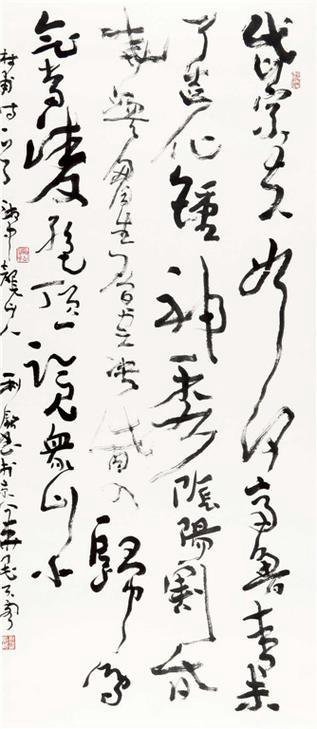 岱宗夫如何齊魯青未
了造化鍾神秀陰陽割昏
曉盪胸生曾雲決眥入歸鳥
會當凌絕頂一覽衆山小
杜甫詩一首